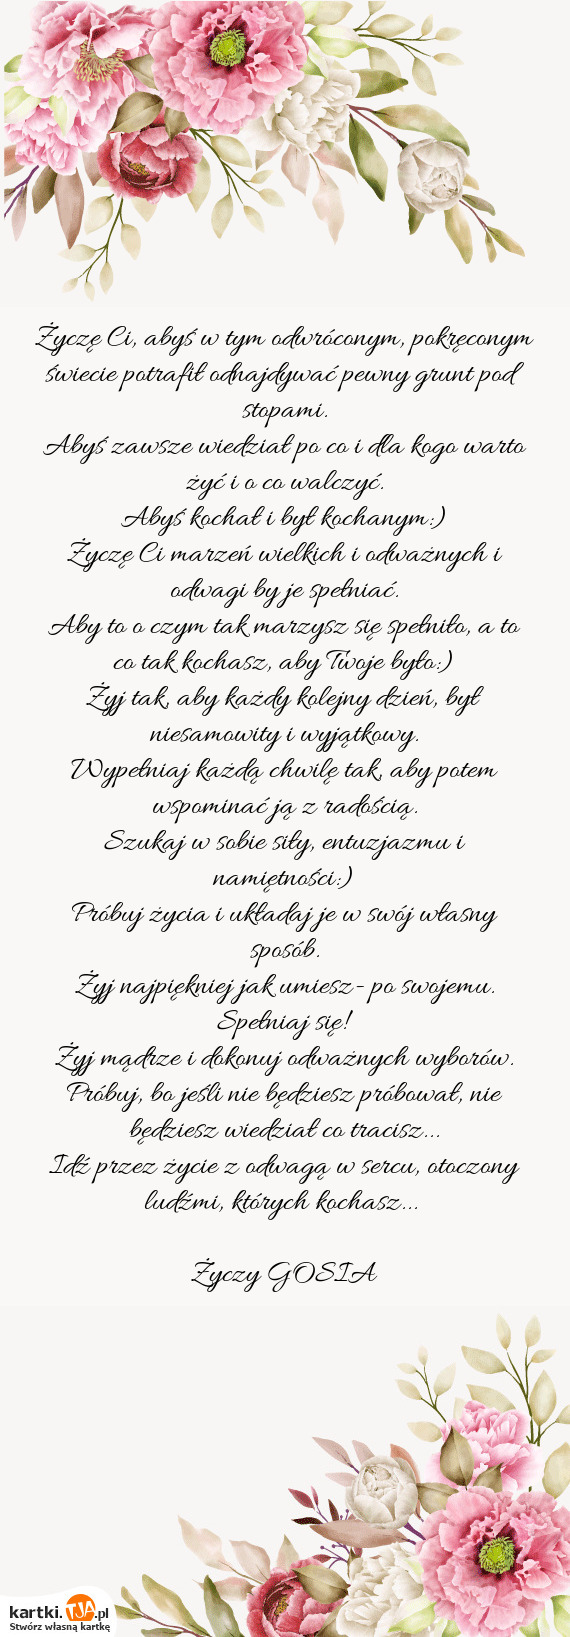 Życzę Ci, abyś w tym odwróconym, pokręconym
świecie potrafił odnajdywać pewny grunt pod
stopami.
Abyś zawsze wiedział po co i dla kogo warto
żyć i o co walczyć.
Abyś kochał i był kochanym:)
Życzę Ci marzeń wielkich i odważnych i
odwagi by je spełniać.
Aby to o czym tak marzysz się spełniło, a to
co tak kochasz, aby Twoje było:)
Żyj tak, aby każdy kolejny dzień, był
niesamowity i wyjątkowy.
Wypełniaj każdą chwilę tak, aby potem
wspominać ją z radością.
Szukaj w sobie siły, entuzjazmu i
namiętności:)
Próbuj życia i układaj je w swój własny
sposób.
Żyj najpiękniej jak umiesz- po swojemu.
Spełniaj się!
Żyj mądrze i dokonuj odważnych wyborów.
Próbuj, bo jeśli nie będziesz próbował, nie
będziesz wiedział co tracisz...
Idź przez życie z odwagą w sercu, otoczony
ludźmi, których kochasz...
Życzy GOSIA
kartki.TJA.pl
Stwórz własną kartkę